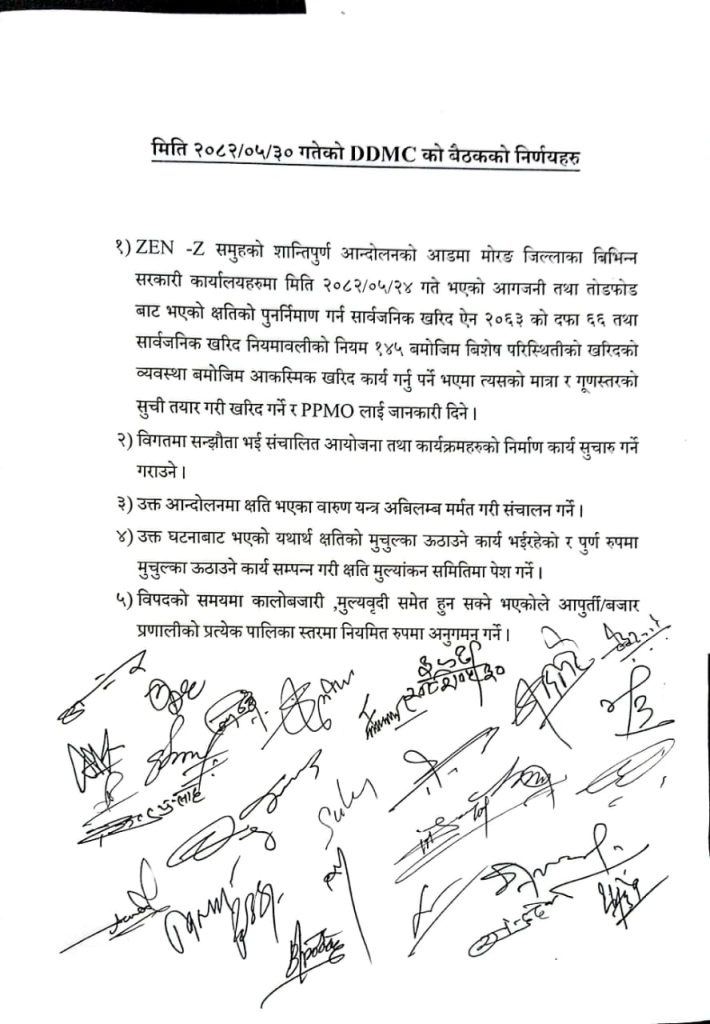 मिति २०८२/०५/३० गतेको DDMC को बैठकको निर्णयहरु
१) ZEN -Z समुहको शान्तिपुर्ण आन्दोलनको आडमा मोरङ जिल्लाका बिभिन्न
सरकारी कार्यालयहरुमा मिति २०८२/०५/२४ गते भएको आगजनी तथा तोडफोड
बाट भएको क्षतिको पुनर्निमाण गर्न सार्वजनिक खरिद ऐन २०६३ को दफा ६६ तथा
सार्वजनिक खरिद नियमावलीको नियम १४५ बमोजिम बिशेष परिस्थितीको खरिदको
व्यवस्था बमोजिम आकस्मिक खरिद कार्य गर्नु पर्ने भएमा त्यसको मात्रा र गूणस्तरको
सुची तयार गरी खरिद गर्ने र PPMO लाई जानकारी दिने ।
२) विगतमा सन्झौता भई संचालित आयोजना तथा कार्यक्रमहरुको निर्माण कार्य सुचारु गर्ने
गराउने ।
३) उक्त आन्दोलनमा क्षति भएका वारुण यन्त्र अबिलम्ब मर्मत गरी संचालन गर्ने ।
४) उक्त घटनाबाट भएको यथार्थ क्षतिको मुचुल्का ऊठाउने कार्य भईरहेको र पुर्ण रुपमा
मुचुल्का ऊठाउने कार्य सम्पन्न गरी क्षति मुल्यांकन समितिमा पेश गर्ने ।
५) विपदको समयमा कालोबजारी ,मुल्यवृदी समेत हुन सक्ने भएकोले आपुर्ती/बजार
प्रणालीको प्रत्येक पालिका स्तरमा नियमित रुपमा अनुगमन गर्ने ।
२०८२।०५।३०